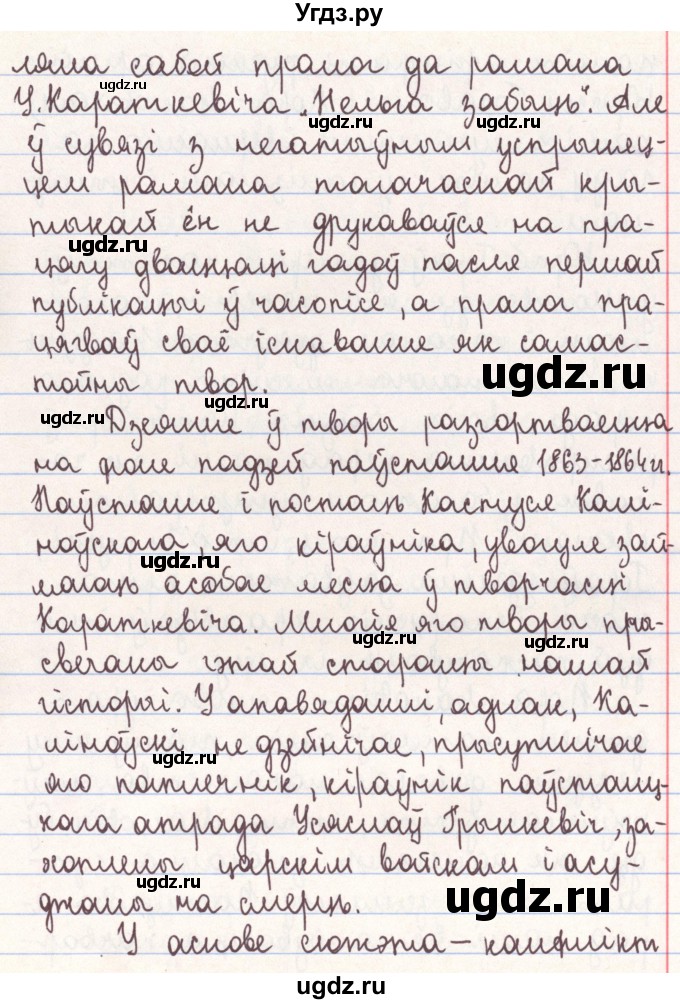 Угдз.ру
ляла сабой пралог да рамана
У. Караткевіча „Нельга забыць“. Але
ў сувязі з негатыўным успрыняц-
цем рамана тагачаснай кры-
тыкай ён не друкаваўся на пра-
цягу дваццаці гадоў пасля першай
публікацыі ў часопісе, а пралог пра-
цягваў сваё існаванне як самас-
тойны твор.
Дзеянне ў творы разгортваецца
на фоне падзей паўстання 1863-1864 гг.
Паўстанне і постаць Кастуся Калі-
ноўскага, яго кіраўніка, увогуле зай-
маюць асобае месца ў творчасці
Караткевіча. Многія яго творы пры-
свечаны гэтай старонцы нашай
гісторыі. У апавяданні, аднак, Ка-
ліноўскі не дзейнічае, прысутнічае
яго паплечнік, кіраўнік паўстанц-
кага атрада Усяслаў Грынкевіч, за-
хоплены царскім войскам і асу-
джаны на смерць.
У аснове сюжэта – канфлікт
ugdz.ru
ugdz.ru
ugdz.ru
ugdz.ru
ugdz.ru
ugdz.ru
ugdz.ru
ugdz.ru
ugdz.ru
ugdz.ru
ugdz.ru
ugdz.ru
ugdz.ru
ugdz.ru